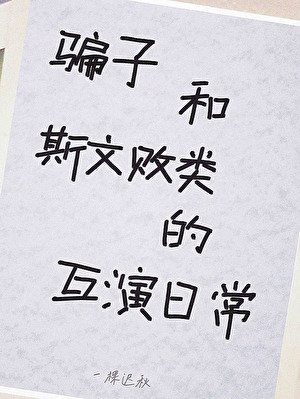 骗子
和
斯文败类
的
互演日常
一棵迟秋